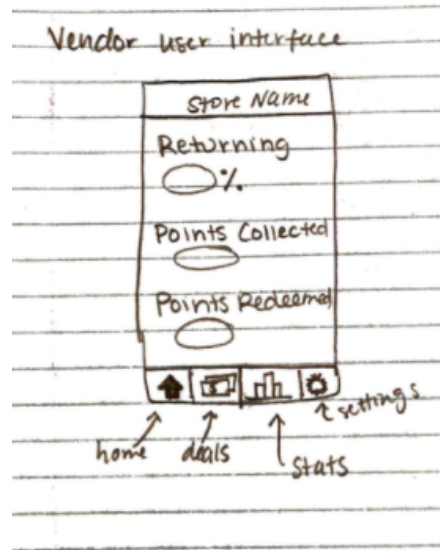 Vendor user interface
Store Name
Returning
%
Points Collected
Points Redeemed
settings
home
deals
stats